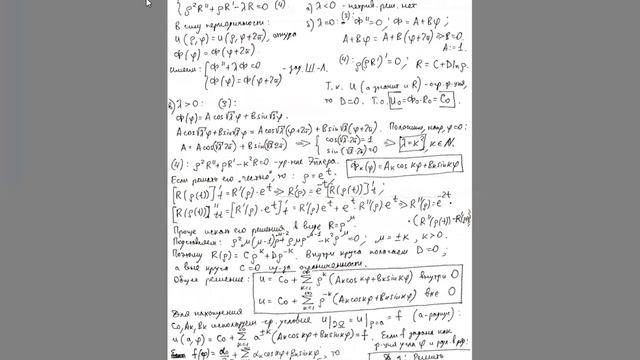 {ρ²R''+ρR'-λR=0 (4)
В силу периодичности:
u(ρ,φ)=u(ρ,φ+2π), откуда
Φ(φ)=Φ(φ+2π)
имеем: {Φ''+λΦ=0
Φ(φ)=Φ(φ+2π) - зад. Ш-Л.
а) λ<0 - неприв. реш. нет
б) λ=0: (3) Φ''=0; Φ=A+Bφ;
A+Bφ=A+B(φ+2π) ⇒ B=0.
A:=1.
(4): ρ(ρR')'=0; R=C+Dlnρ.
Т.к. u (а значит и R) - огр. ф-ия,
то D=0. Т.о. u₀=Φ₀·R₀=C₀.
в) λ>0: (3):
Φ(φ)=A cos√λφ+B sin√λφ.
A cos√λφ+B sin√λφ=A cos√λ(φ+2π)+B sin√λ(φ+2π). Положим, напр, φ=0:
A=A cos(√λ·2π)+B sin(√λ·2π) ⇒ {cos(√λ·2π)=1
sin(√λ·2π)=0 ⇒ λ=k², k∈N.
(4): ρ²R''+ρR'-k²R=0 - ур-ние Эйлера. Φₖ(φ)=Aₖcos kφ+Bₖsin kφ
Если решать его "честно", то: ρ=eᵗ.
[R(ρ(t))]'ₜ=R'(ρ)·eᵗ ⇒ R'(ρ)=e⁻ᵗ[R(ρ(t))]'ₜ;
[R(ρ(t))]''ₜₜ=[R'(ρ)·eᵗ]'ₜ=R'(ρ)eᵗ+eᵗ·R''(ρ)eᵗ ⇒ R''(ρ)=e⁻²ᵗ·
Проще искать его решения в виде R=ρ^μ
Подставляем: ρ²μ(μ-1)ρ^μ⁻²+ρμρ^μ⁻¹-k²ρ^μ=0; μ=±k, k>0.
Поэтому R(ρ)=Cρᵏ+Dρ⁻ᵏ. Внутри круга полагаем D=0;
а вне круга C=0 из-за ограниченности.
Общее решение: u=C₀+∑ρᵏ(Aₖcos kφ+Bₖsin kφ) внутри O
u=C₀+∑ρ⁻ᵏ(Aₖcos kφ+Bₖsin kφ) вне O
Для нахождения
C₀,Aₖ,Bₖ используем гр. условия u|∂Ω=u|ρ=a=f (a-радиус)
u(a,φ)=C₀+∑a^±ᵏ(Aₖcos kφ+Bₖsin kφ)=f. Если f задана как